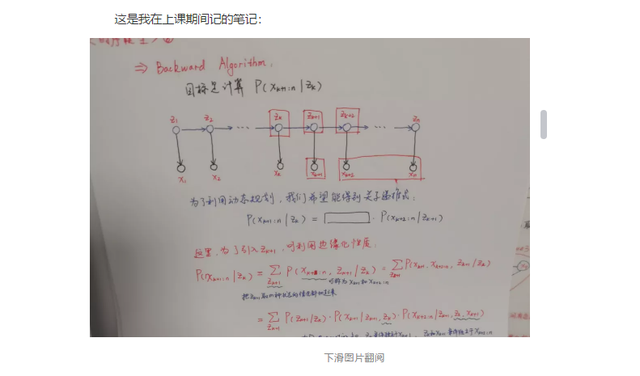 这是我在上课期间记的笔记：
⇒ Backward Algorithm.
目标是计算 P(x_{k+1:n} | z_k)
z_1 z_2 ... z_k z_{k+1} z_{k+2} ... z_n
x_1 x_2 x_k x_{k+1} x_{k+2} x_n
为了利用动态规划，我们希望能得到关于递推式：
P(x_{k+1:n} | z_k) = □ · P(x_{k+2:n} | z_{k+1})
这里，为了引入 z_{k+1}，可利用边缘化性质：
P(x_{k+1:n} | z_k) = Σ_{z_{k+1}} P(x_{k+1:n}, z_{k+1} | z_k) = Σ_{z_{k+1}} P(x_{k+1}, x_{k+2:n}, z_{k+1} | z_k)
= Σ_{z_{k+1}} P(z_{k+1} | z_k) · P(x_{k+1} | z_{k+1}, z_k) · P(x_{k+2:n} | z_{k+1}, z_k, x_{k+1})
下滑图片翻阅